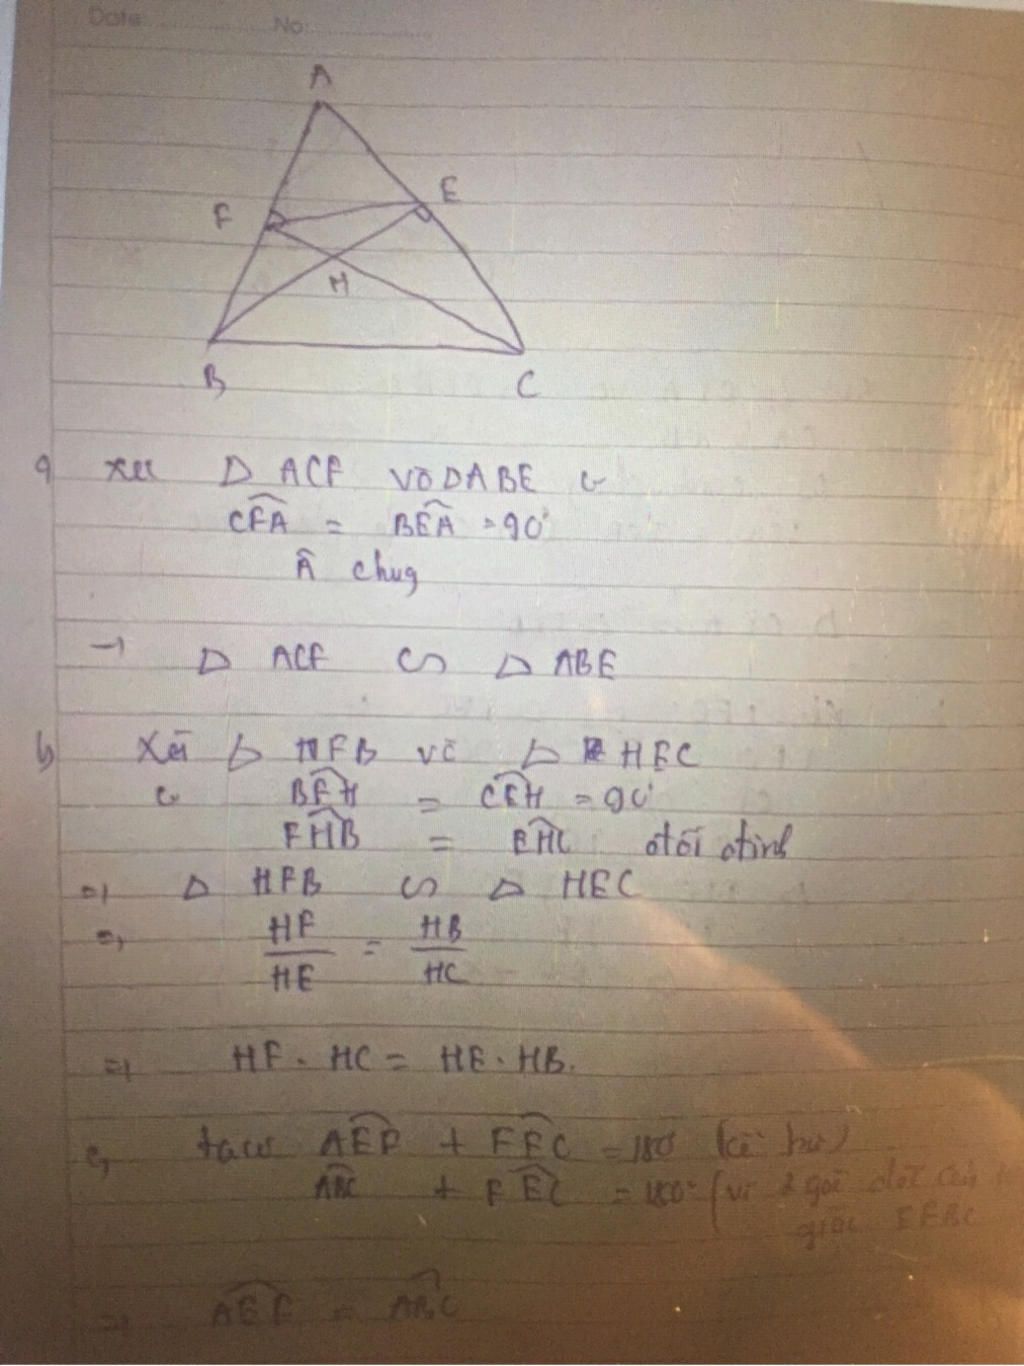 Date: No:
A
F E
H
B C
a xét Δ ACF và Δ ABE có
CFA = BEA = 90°
Â chug
→ Δ ACF ∽ Δ ABE
b, Xét Δ HFB và Δ HEC
có BFH = CEH = 90°
FHB = EHC đối đỉnh
=> Δ HFB ∽ Δ HEC
=> HF/HE = HB/HC
=> HF . HC = HE . HB.
c, ta có AEF + FEC = 180° (kề bù)
ABC + FEC = 180° (vì 2 góc đối của
giác EFBC
=> AEF = ABC